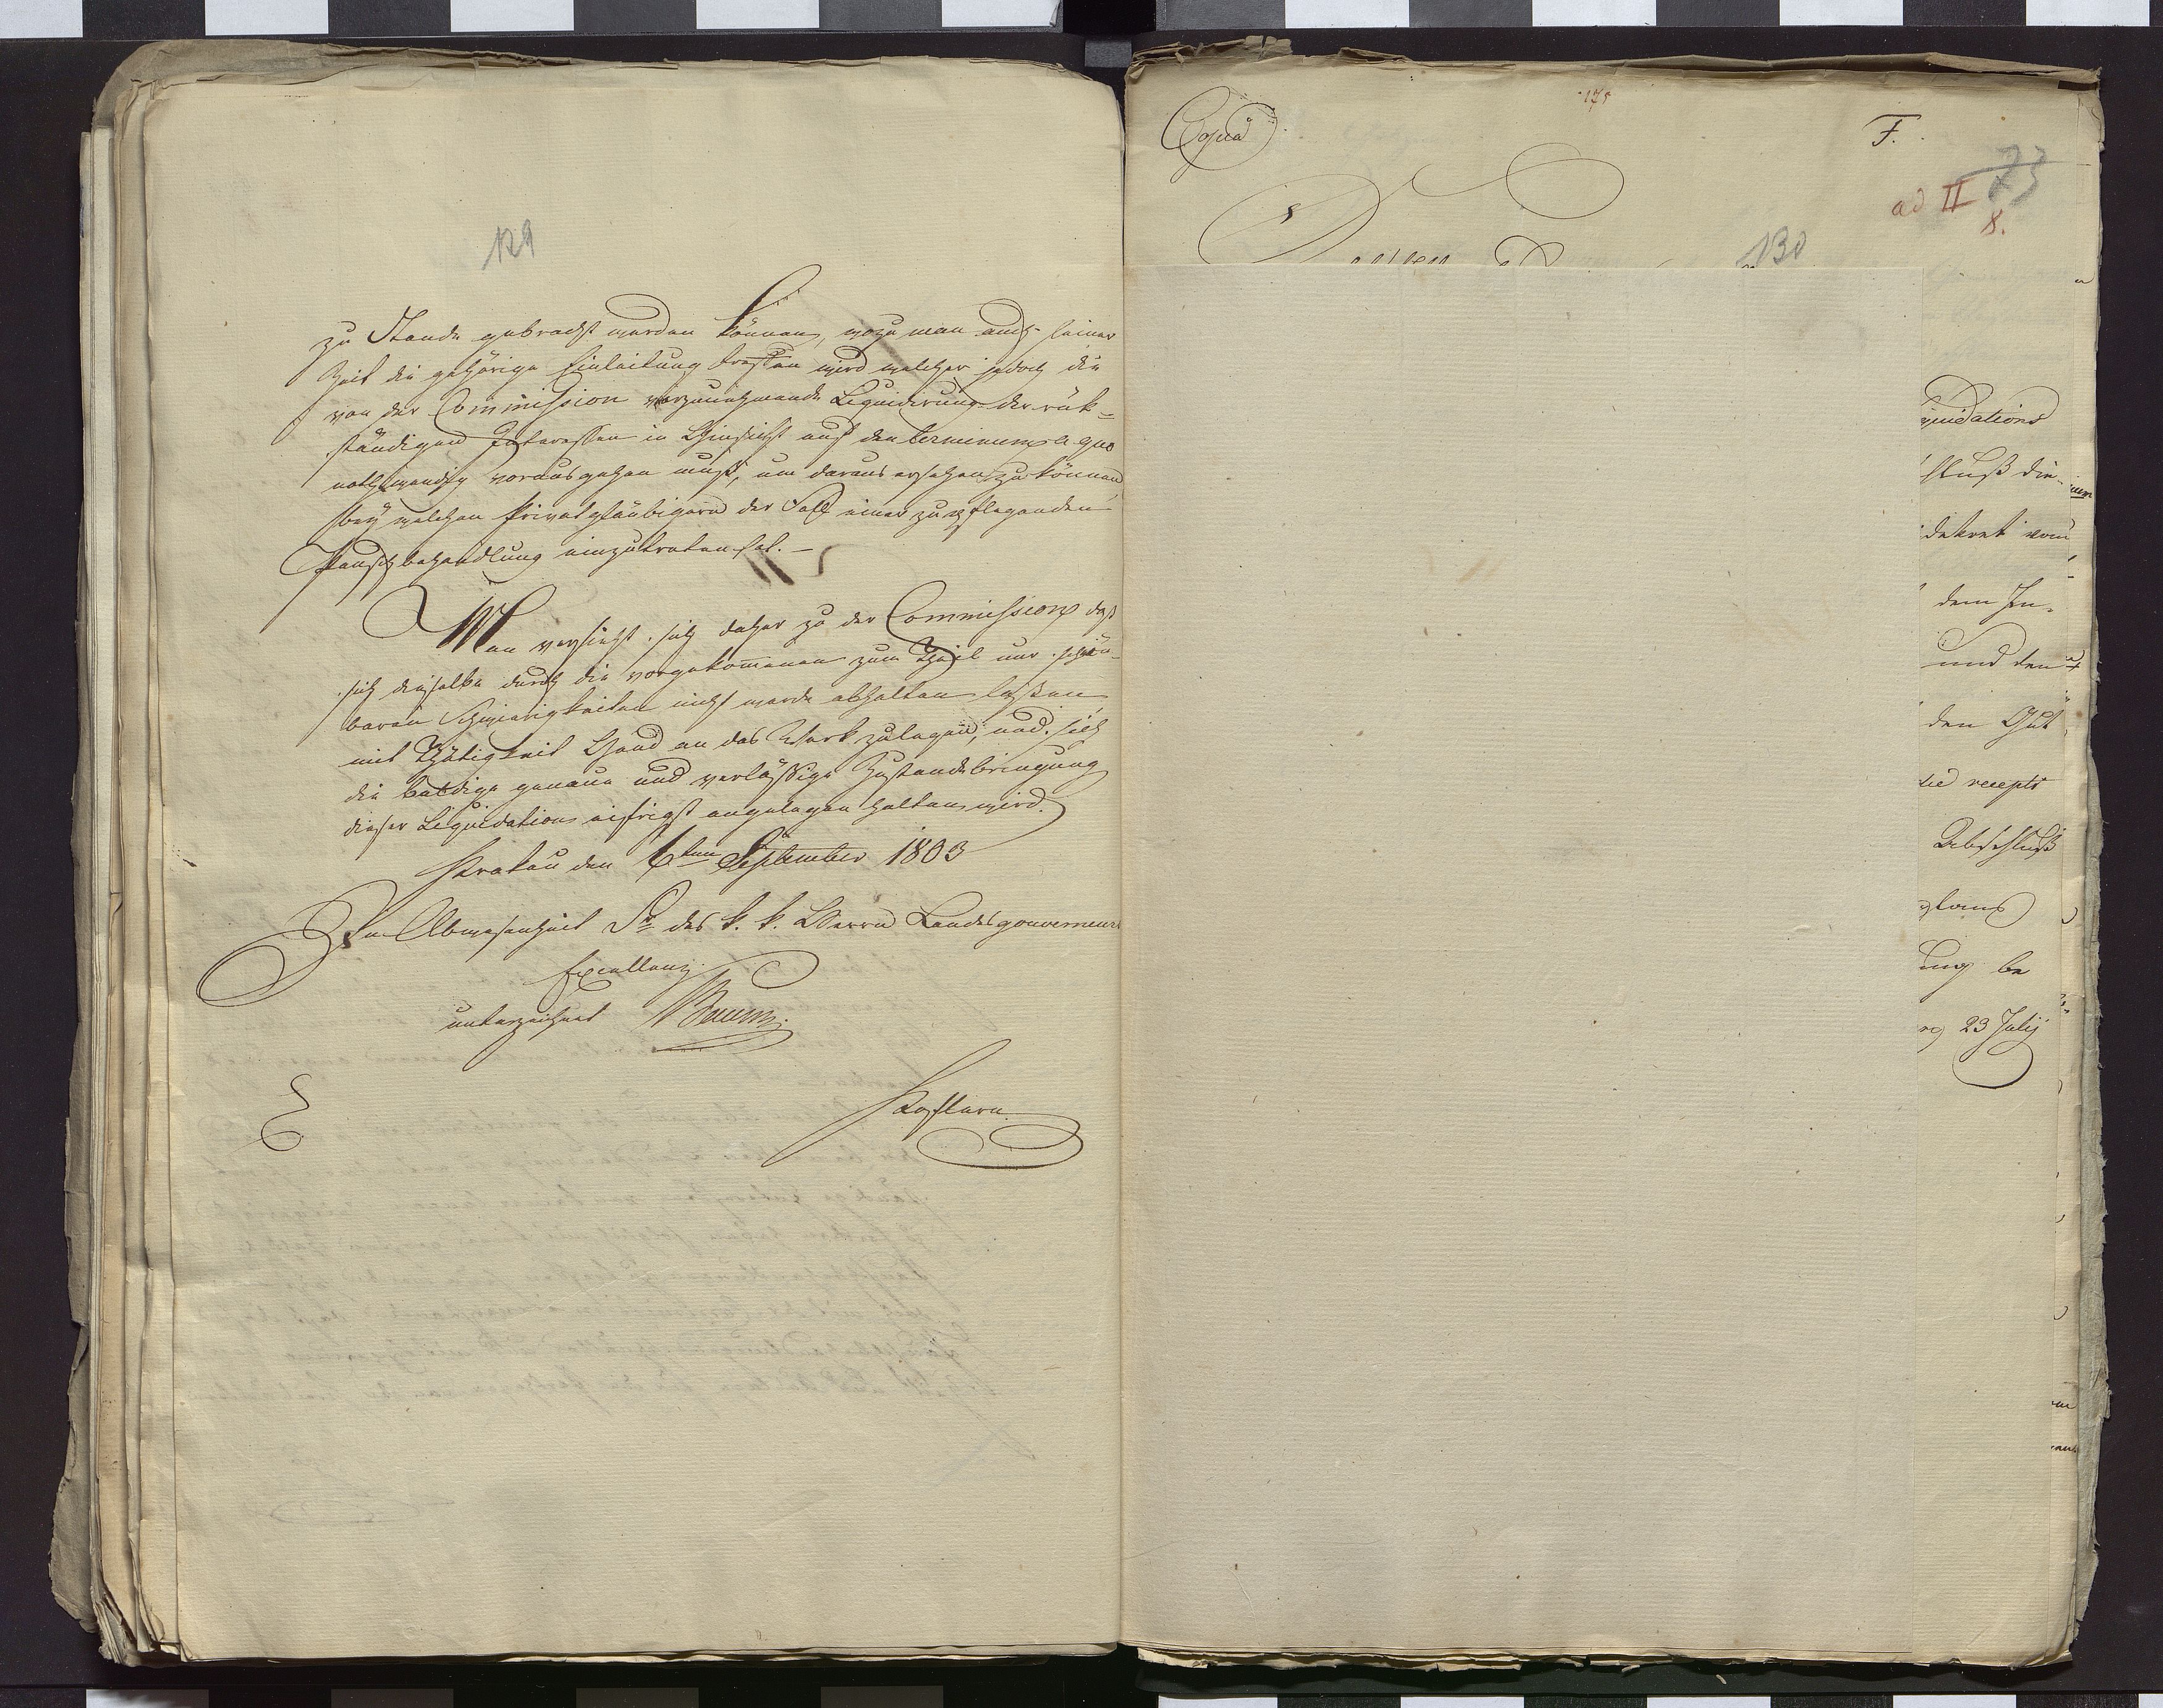 129
zu Stande gebracht werden können, wozu man auch seiner
Zeit die gehörige Einleitung treffen wird welcher jedoch die
von der Commission vorzunehmende Liquidirung der rük=
ständigen Interessen in Hinsicht auf den terminum a quo
nothwendig vorausgehen muß, um daraus ersehen zu können
bey welchen Privatgläubigern der Fall einer zu pflegenden
Pauschbehandlung einzutreten hat. –
Man versieht sich daher zu der Commission daß
sich dieselbe durch die vorgekommenen zum Theil nur schein=
baren Schwierigkeiten nicht werde abhalten laßen
mit Thätigkeit Hand an das Werk zulegen, und sich
die baldige genaue und verläßige Zustandebringung
dieser Liquidation eifrigst angelegen halten wird.
Krakau den 6ten September 1803
In Abwesenheit Sr des k. k. Herrn Landesgouverneurs
Excellenz.
unterzeichnet
175
Copia
F.
73
ad II
8.
130
quidations
hluß die
dekret vom
dem In=
und den
den Gut
recepti
Abschluß
ung be
23 July